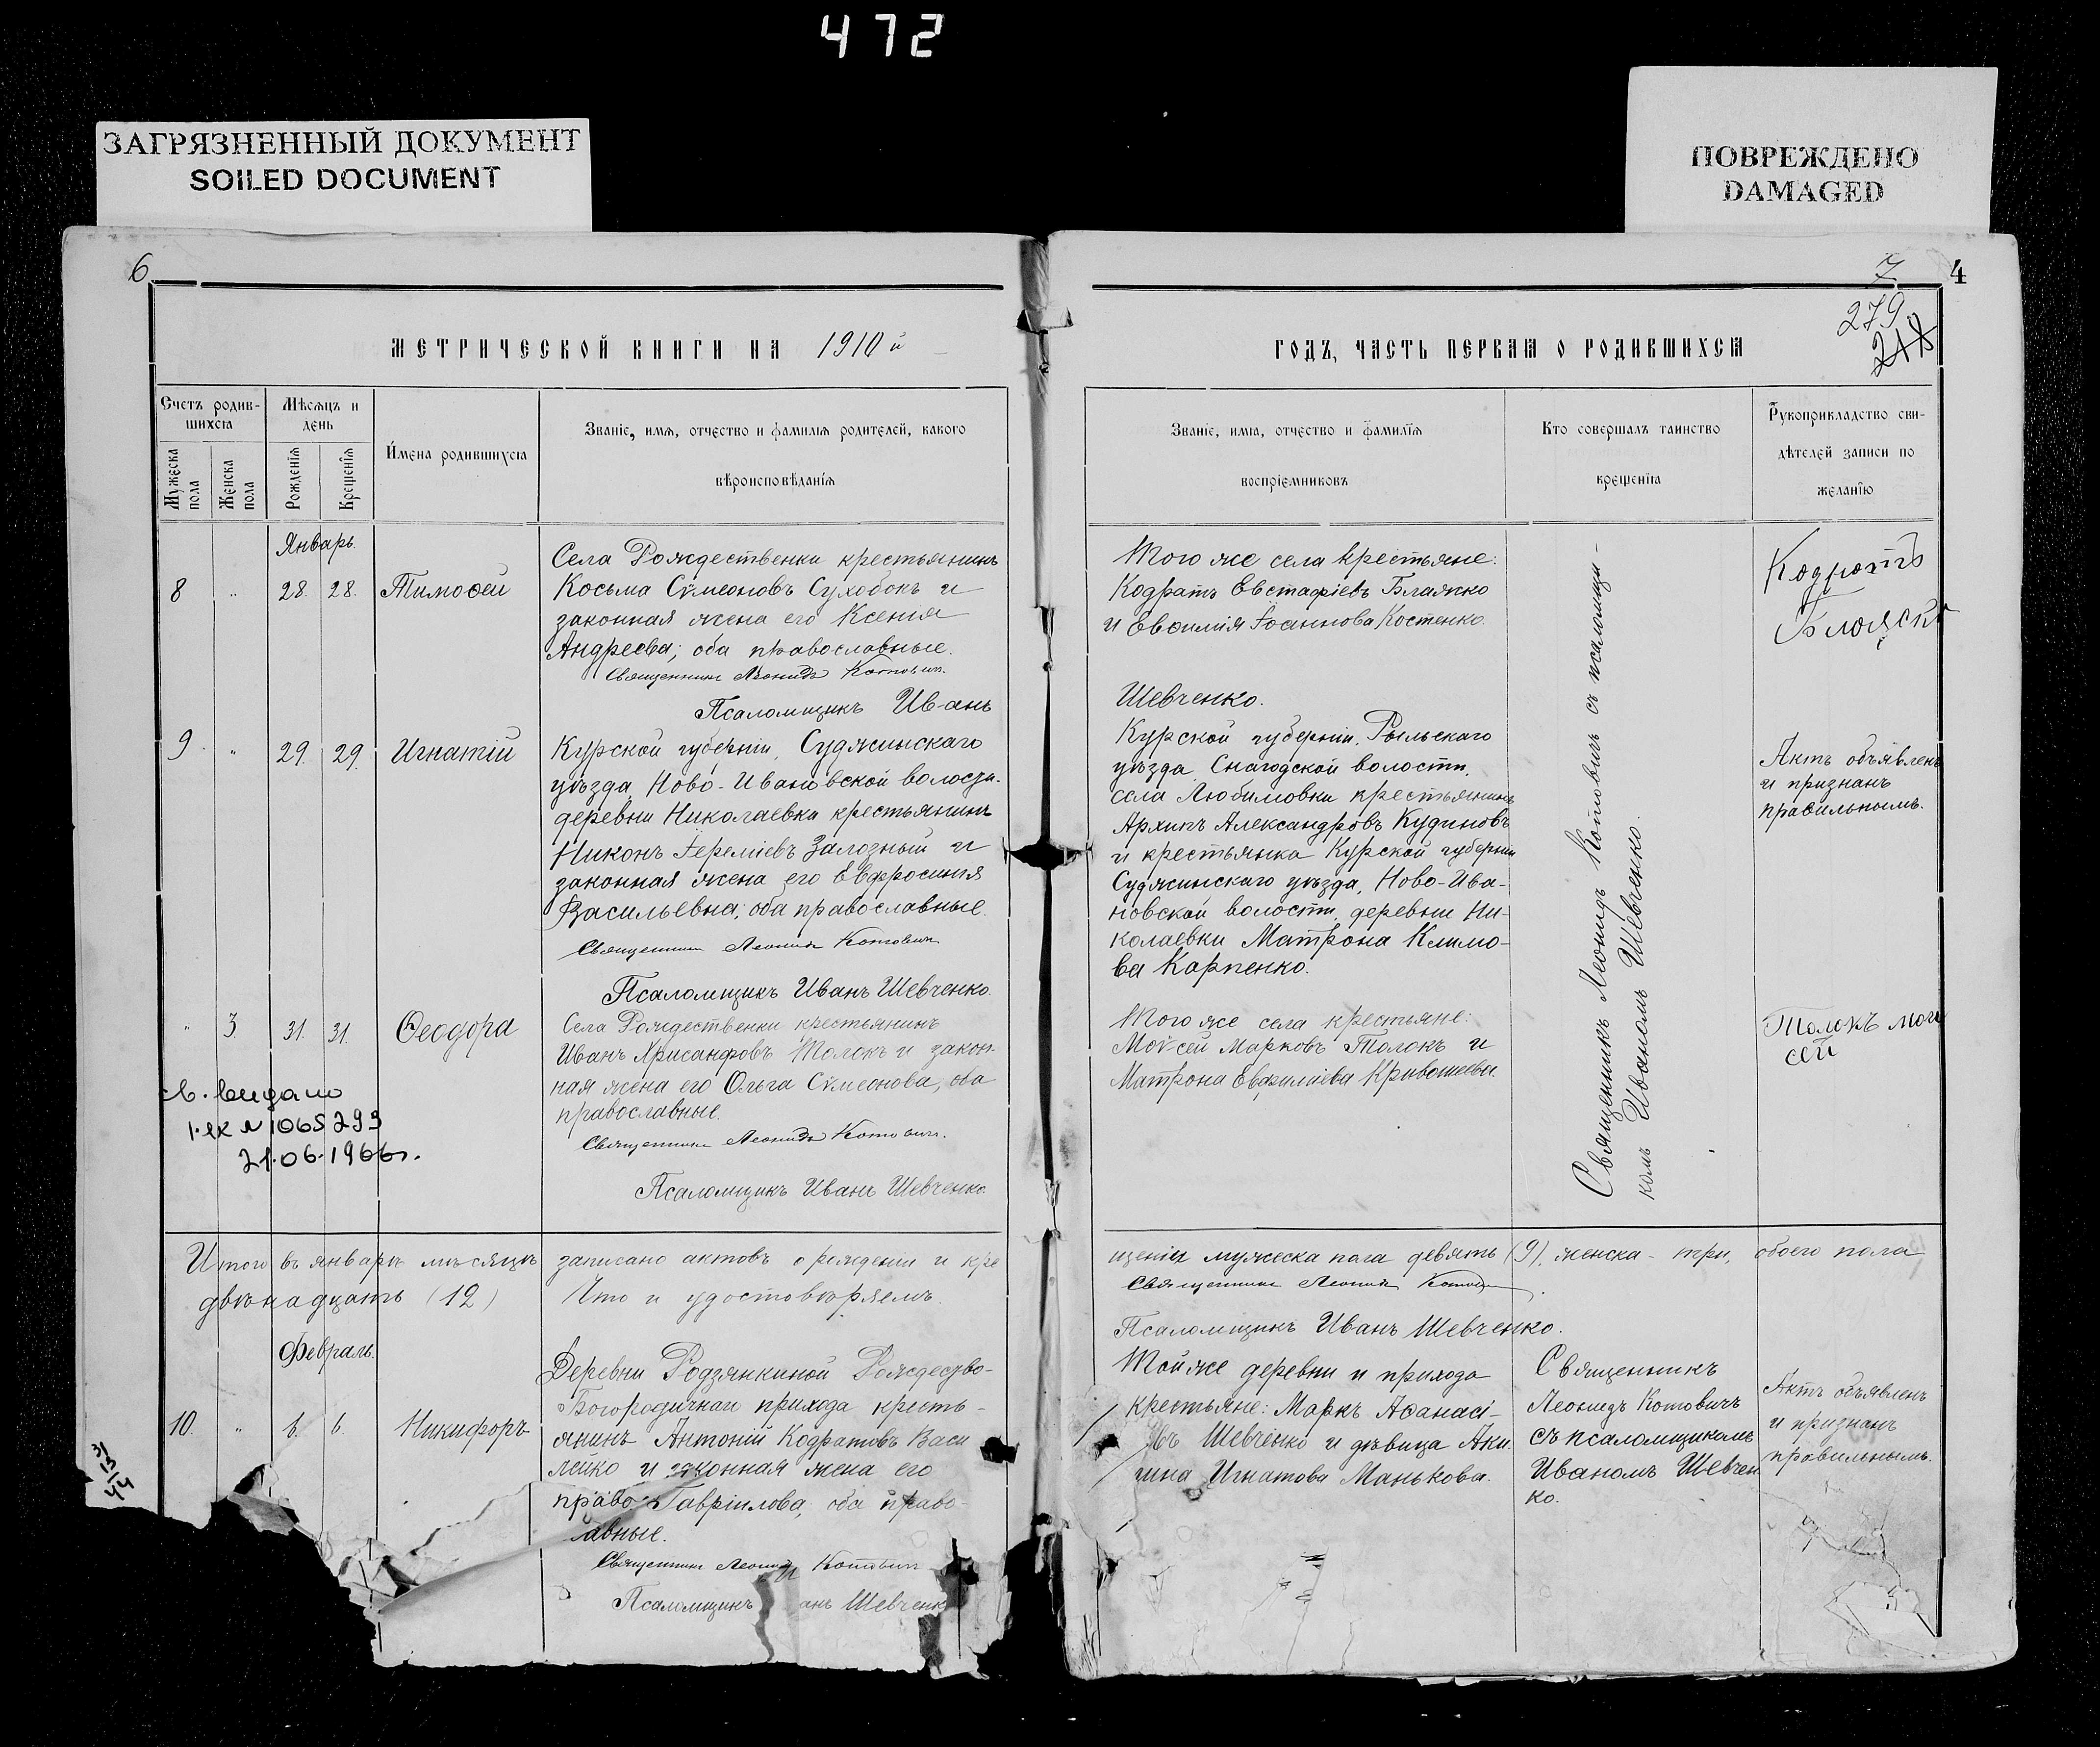 472
ЗАГРЯЗНЕННЫЙ ДОКУМЕНТ
SOILED DOCUMENT
ПОВРЕЖДЕНО
DAMAGED
6
МЕТРИЧЕСКОЙ КНИГИ НА 1910й
Счетъ родив-
шихся
Мужеска
пола
Женска
пола
Мѣсяцъ и
день
Рожденія
Крещенія
Имена родившихся
Званіе, имя, отчество и фамилія родителей, какого
вѣроисповѣданія
Январь.
8 " 28. 28. Тимоѳей
Села Рождественки крестьянинъ
Косьма Сѷмеоновъ Сухобокъ и
законная жена его Ксенія
Андреева; оба православные.
Священникъ Леонидъ Котовичъ.
Псаломщикъ Иванъ
9. " 29. 29. Игнатій
Курской губерніи, Суджинскаго
уѣзда, Ново-Ивановской волости.
деревни Николаевки крестьянинъ
Никонъ Іереміевъ Залозный и
законная жена его Евфросинія
Васильевна; оба православные.
Священникъ Леонидъ Котовичъ
Псаломщикъ Иванъ Шевченко.
" 3. 31. 31. Ѳеодора
Села Рождественки крестьянинъ
Иванъ Хрисанфовъ Толокъ и закон-
ная жена его Ольга Сѷмеонова, оба
православные.
Священникъ Леонидъ Котовичъ.
Псаломщикъ Иванъ Шевченко.
св. видано
1-ЯК N 1065293
21.06.1966г.
Итого въ январѣ мѣсяцѣ записано актовъ о рожденіи и кре
двѣнадцать (12) Что и удостовѣряемъ.
Февраль.
10. " 6. 6. Никифоръ
Деревни Родзянкиной Рождество-
Богородичнаго прихода кресть-
янинъ Антоній Кодратовъ Васи
ленко и законная жена его
право Гавріилова, оба право-
авные.
Священникъ Леонидъ Котовичъ
Псаломщикъ анъ Шевченк
31
13
44
7
4
279
218
ГОДЪ, ЧАСТЬ ПЕРВАЯ О РОДИВШИХСЯ
Званіе, имя, отчество и фамилія
воспріемниковъ
Кто совершалъ таинство
крещенія
Рукоприкладство сви-
дѣтелей записи по
желанію
Того же села крестьяне:
Кодратъ Евстафіевъ Блаяско
и Евѳимія Іоаннова Костенко.
Кодратъ
Блояско
Шевченко.
Курской губерніи, Рыльскаго
уѣзда, Снагодской волости,
села Любимовки крестьянинъ
Архипъ Александровъ Кудиновъ
и крестьянка Курской губерніи
Суджинскаго уѣзда, Ново-Ива-
новской волости, деревни Ни-
колаевки Матрона Климо-
ва Карпенко.
Актъ объявленъ
и признанъ
правильнымъ.
Того же села крестьяне:
Моѷсей Марковъ Толокъ и
Матрона Евфиміева Кривошеева.
Толокъ Мои
сей
Священникъ Леонидъ Котовичъ съ псаломщи-
комъ Иваномъ Шевченко.
щеніи мужеска пола девять (9), женска - три, обоего пола
Священникъ Леонидъ Котович
Псаломщикъ Иванъ Шевченко.
Той же деревни и прихода
крестьяне: Маркъ Аѳанасі-
въ Шевченко и дѣвица Аки
лина Игнатова Манькова.
Священникъ
Леонидъ Котовичъ
съ псаломщикомъ
Иваномъ Шевчен
ко.
Актъ объявленъ
и признанъ
правильнымъ.